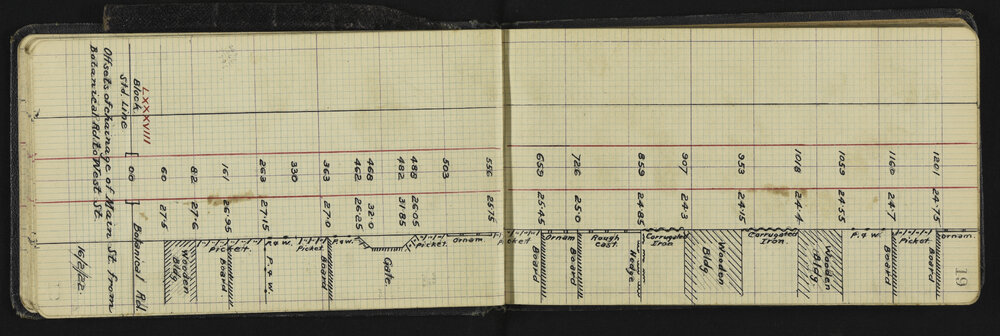 Offsets of chainage of Main St. from
Botanical Rd. to West St.
16/2/22.
Block LXXXVIII
Std. Line
00 Botanical Rd.
60 27·5
82 27·6
Wooden Bldg
161 26·95
Picket.
Board
263 27·15
P. & W.
P. & W.
330
Picket
363 27·0
Board
P. & W.
462 26·25
468 32·0
Gate
482 31·85
488 26·05
Picket.
503
ornam
556 25·75
Picket
659 25·45
Board
ornam
726 25·0
Board
Rough Cast.
859 24·85
Hedge
Corrugated Iron
907 24·3
Wooden Bldg
953 24·15
Corrugated Iron.
1018 24·4
Wooden Bldg.
1059 24·55
P. & W.
1160 24·7
Picket.
Board
1201 24·75
Board
ornam.
19